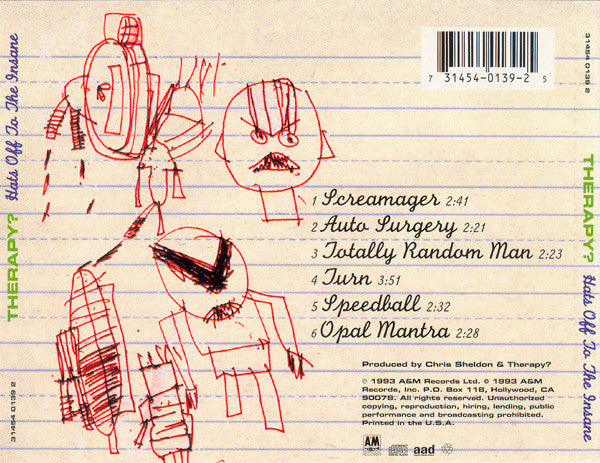 THERAPY? Hats Off To The Insane
31454 0139 2
31454 0139 2
7 31454-0139-2 5
1 Screamager 2:41
2 Auto Surgery 2:21
3 Totally Random Man 2:23
4 Turn 3:51
5 Speedball 2:32
6 Opal Mantra 2:28
Produced by Chris Sheldon & Therapy?
℗ 1993 A&M Records Ltd. © 1993 A&M
Records, Inc. P.O. Box 118, Hollywood, CA
90078. All rights reserved. Unauthorized
copying, reproduction, hiring, lending, public
performance and broadcasting prohibited.
Printed in the U.S.A.
A&M
RECORDS
COMPACT
disc
DIGITAL AUDIO
aad
THERAPY? Hats Off To The Insane
31454 0139 2